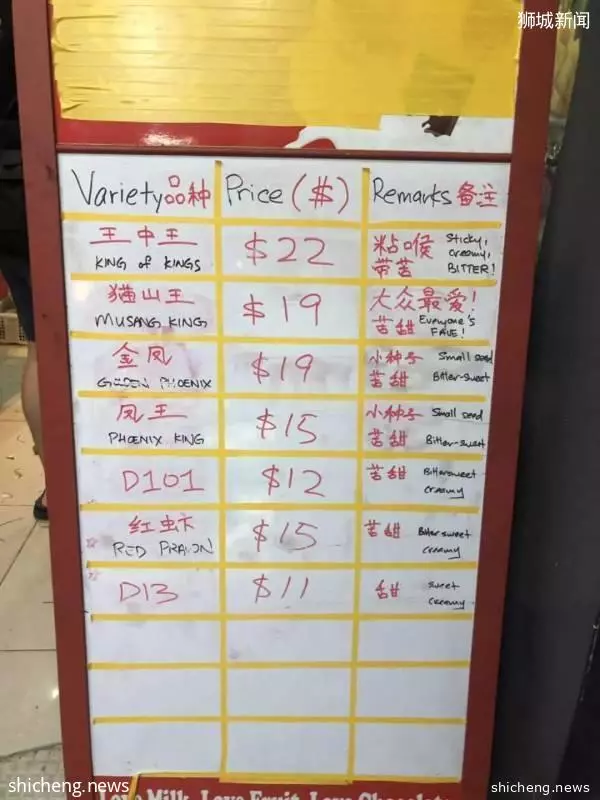 狮城新闻
Variety 品种 Price ($) Remarks 备注
王中王 $22 粘喉 Sticky, creamy,
KING of KINGS 带苦 BITTER!
猫山王 $19 大众最爱!
MUSANG KING 苦甜 Everyone's FAVE!
金凤 $19 小种子 Small seed
GOLDEN PHOENIX 苦甜 Bitter-sweet
凤王 $15 小种子 Small seed
PHOENIX KING 苦甜 Bitter-sweet
D101 $12 苦甜 Bittersweet
creamy
红虾 $15 苦甜 Bittersweet
RED PRAWN creamy
D13 $11 甜 sweet
creamy
Love Milk, Love Fruit, Love Chocolate
shicheng.news
shicheng.news